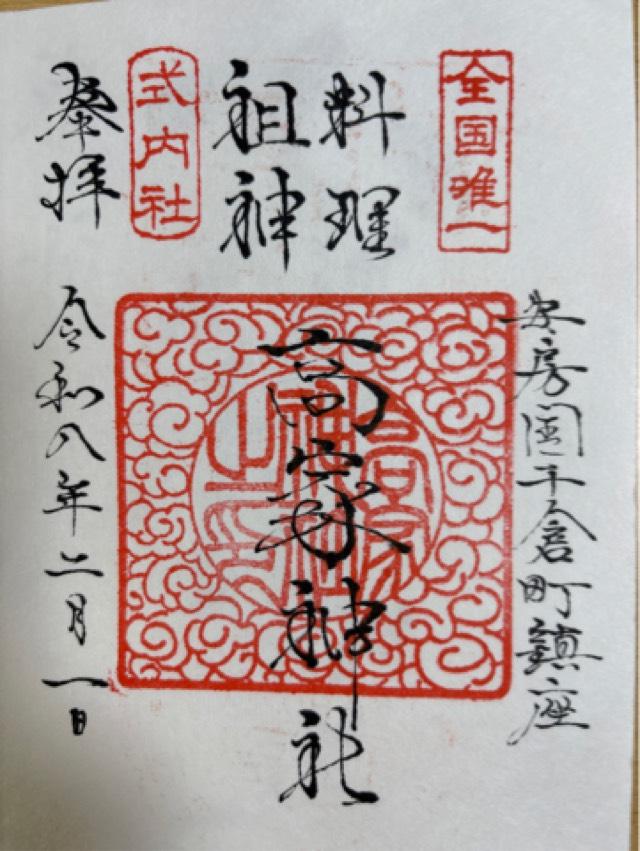 全国唯一
安房国千倉町鎮座
料理
祖神
高家神社
式内社
奉拝
令和八年二月一日